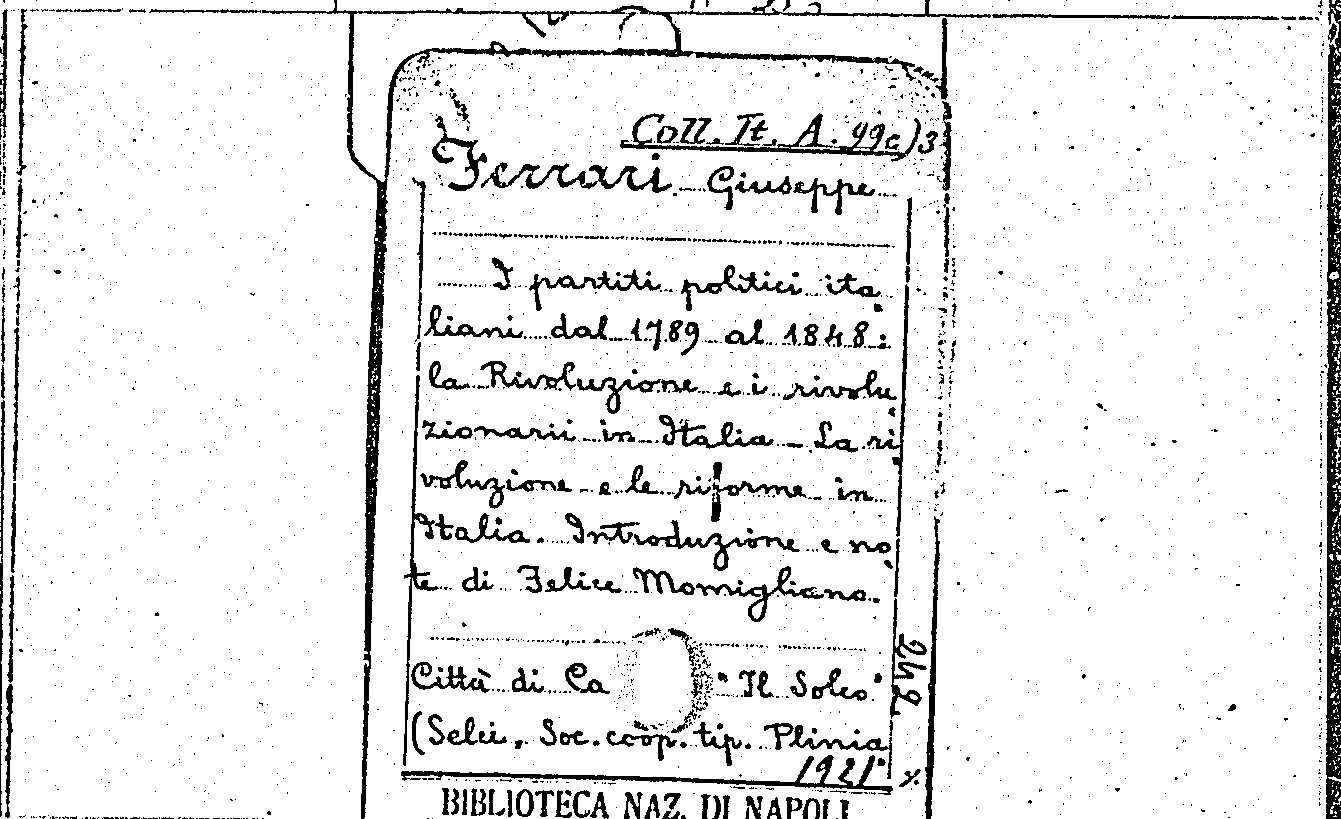 Coll. It. A. 99c)3
Ferrari Giuseppe
I partiti politici ita
liani dal 1789 al 1848:
la Rivoluzione e i rivolu
zionarii in Italia - La ri
voluzione e le riforme in
Italia. Introduzione e no
te di Felice Momigliano.
Città di Ca "Il Solco"
(Selci, Soc. coop. tip. Plinia
1921
242
BIBLIOTECA NAZ. DI NAPOLI